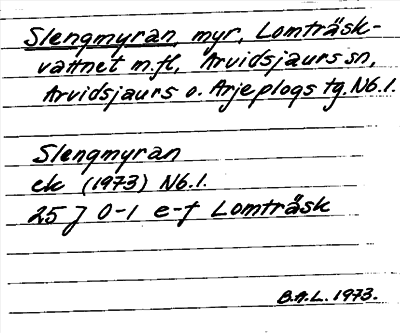 Slengmyran, myr, Lomträsk-
vattnet m.fl., Arvidsjaurs sn,
Arvidsjaurs o. Arjeplogs tg. Nb.l.
Slengmyran
ek (1973) Nb.l.
25 J 0-1 e-f Lomträsk
B.A.L. 1973.